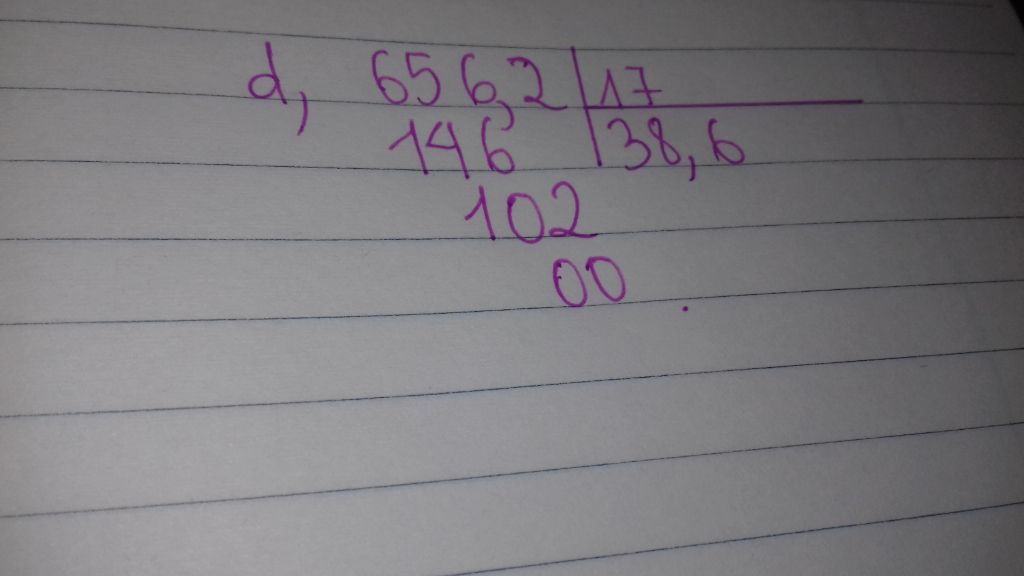 d, 656,2 | 17
146 | 38,6
102
00.